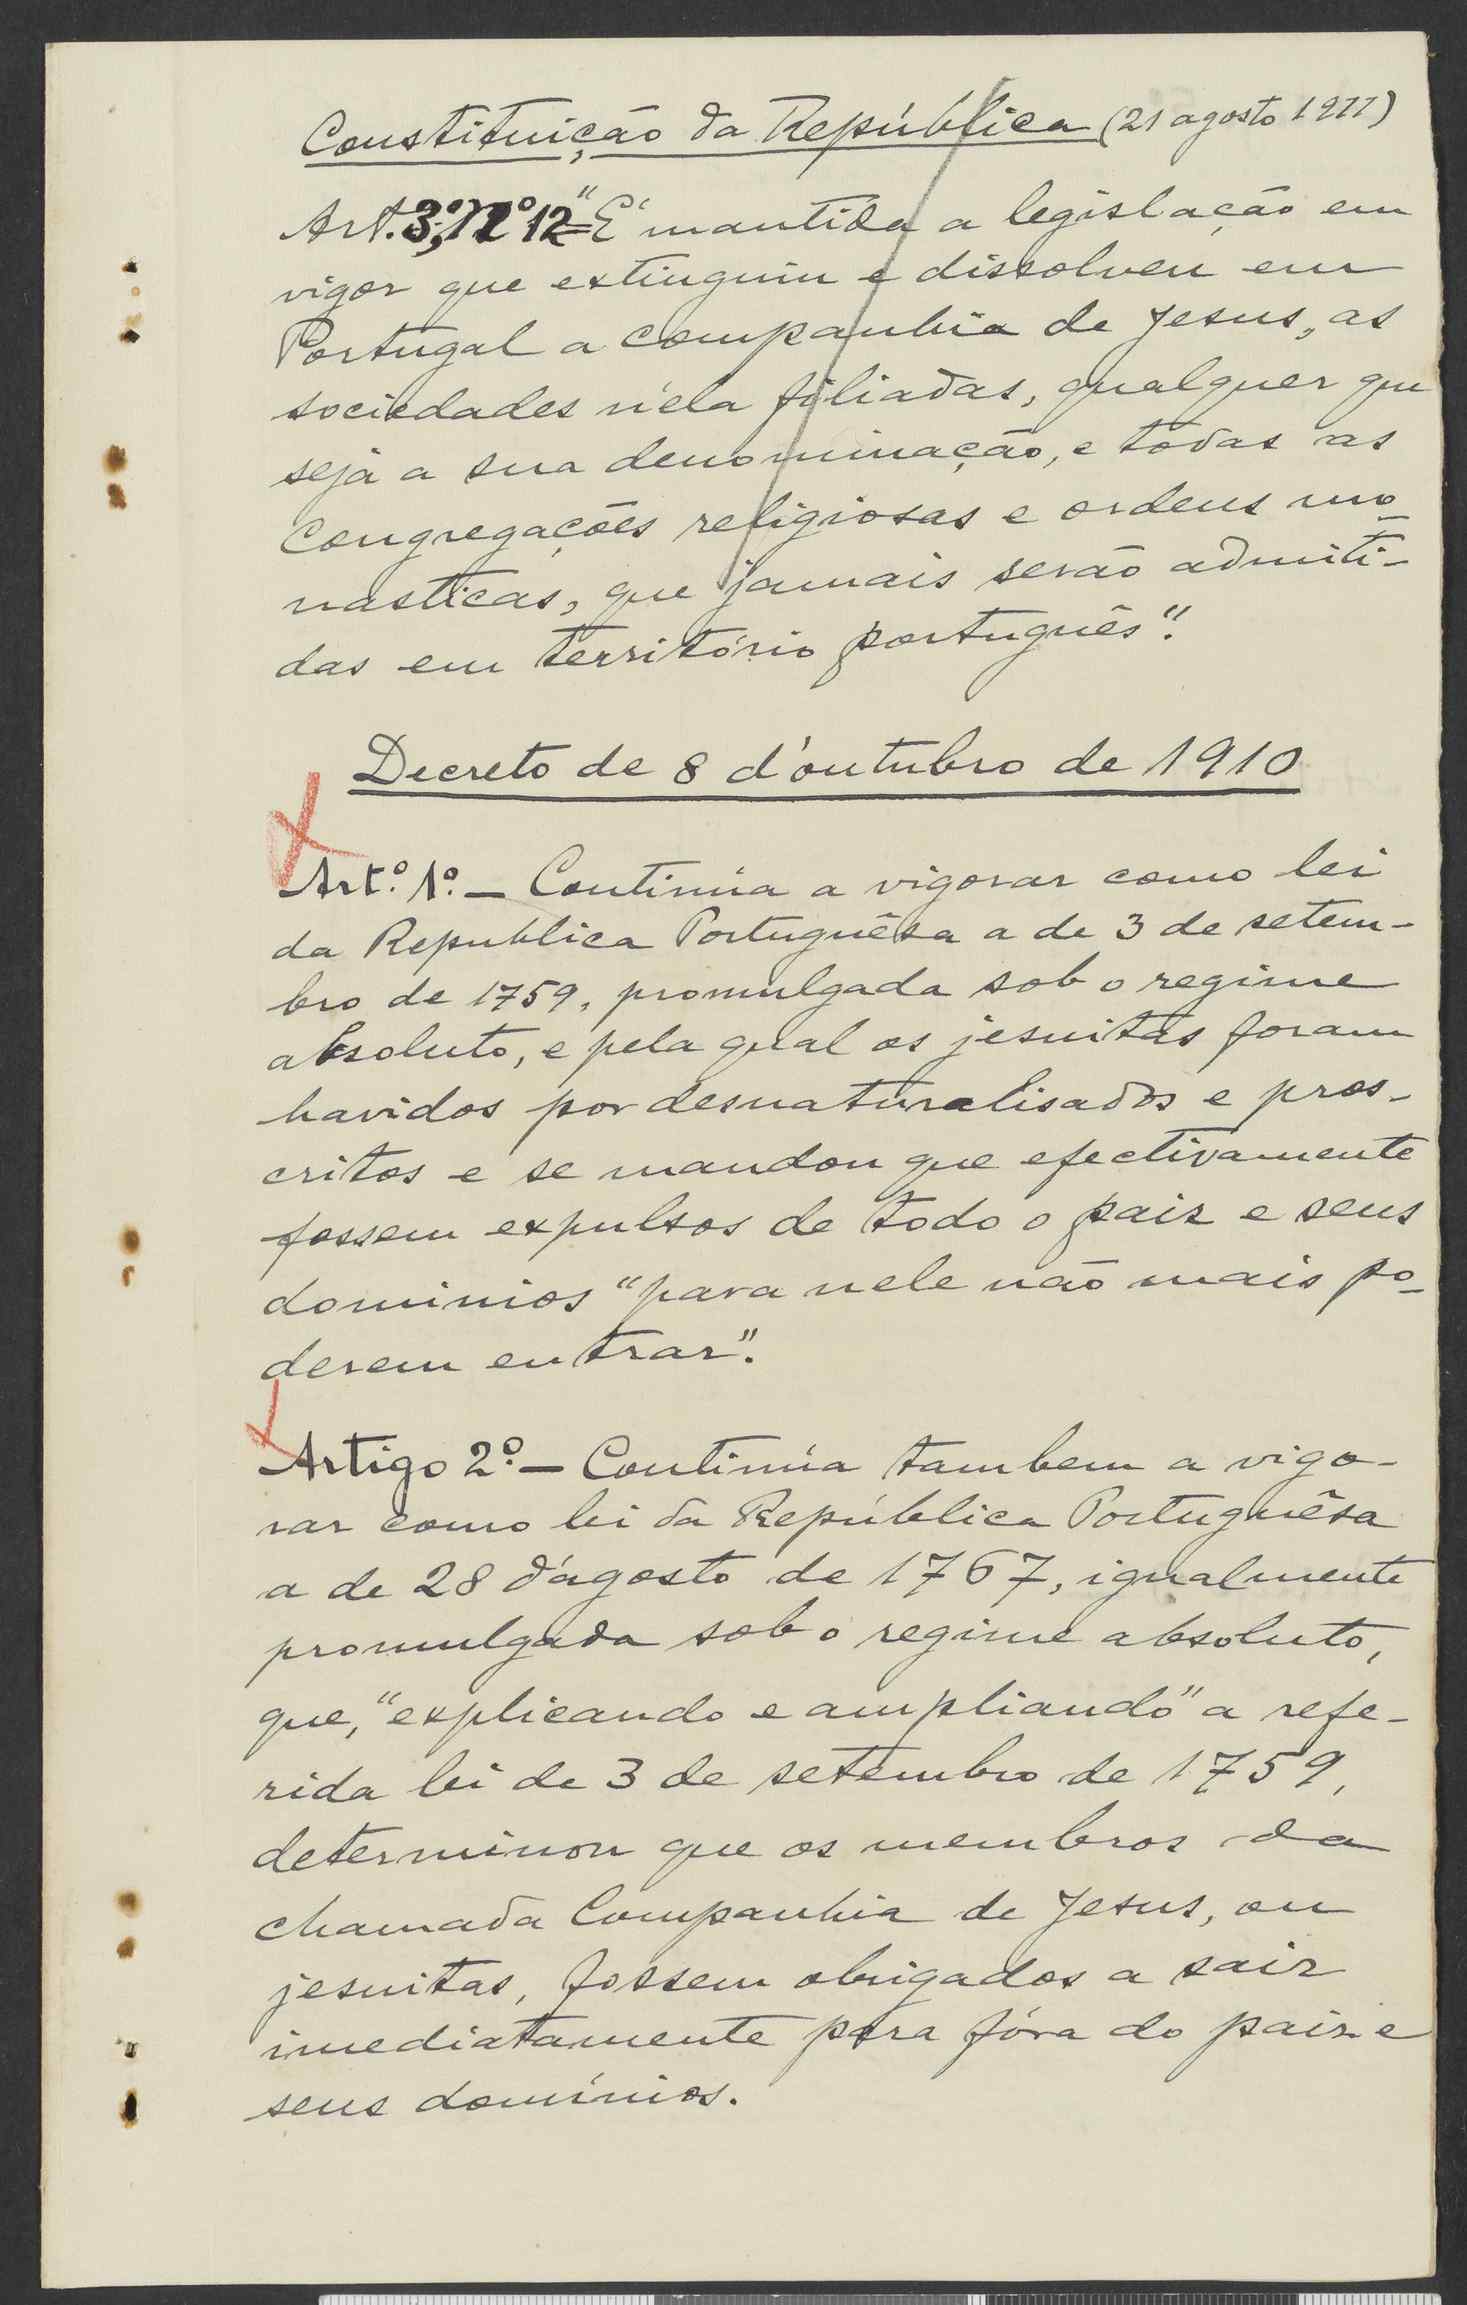 Constituição da República (21 agosto 1911)
Art. 3º, Nº 12 = "É mantida a legislação em
vigor que extinguiu e dissolveu em
Portugal a companhia de Jesus, as
sociedades n'ela filiadas, qualquer que
seja a sua denominação, e todas as
Congregações religiosas e ordens mo-
nasticas, que jamais serão admiti-
das em território português".
Decreto de 8 d'outubro de 1910
Artº. 1º. - Continúa a vigorar como lei
da Republica Portuguêsa a de 3 de setem-
bro de 1759, promulgada sob o regime
absoluto, e pela qual os jesuitas foram
havidos por desnaturalisados e pros-
critos e se mandou que efectivamente
fossem expulsos de todo o paiz e seus
dominios "para nele não mais po-
derem entrar".
Artigo 2º. - Continúa tambem a vigo-
rar como lei da República Portuguêsa
a de 28 d'agosto de 1767, igualmente
promulgada sob o regime absoluto,
que, "explicando e ampliando" a refe-
rida lei de 3 de setembro de 1759,
determinou que os membros da
chamada Companhia de Jesus, ou
jesuitas, fossem obrigados a sair
imediatamente para fóra do paiz e
seus domínios.